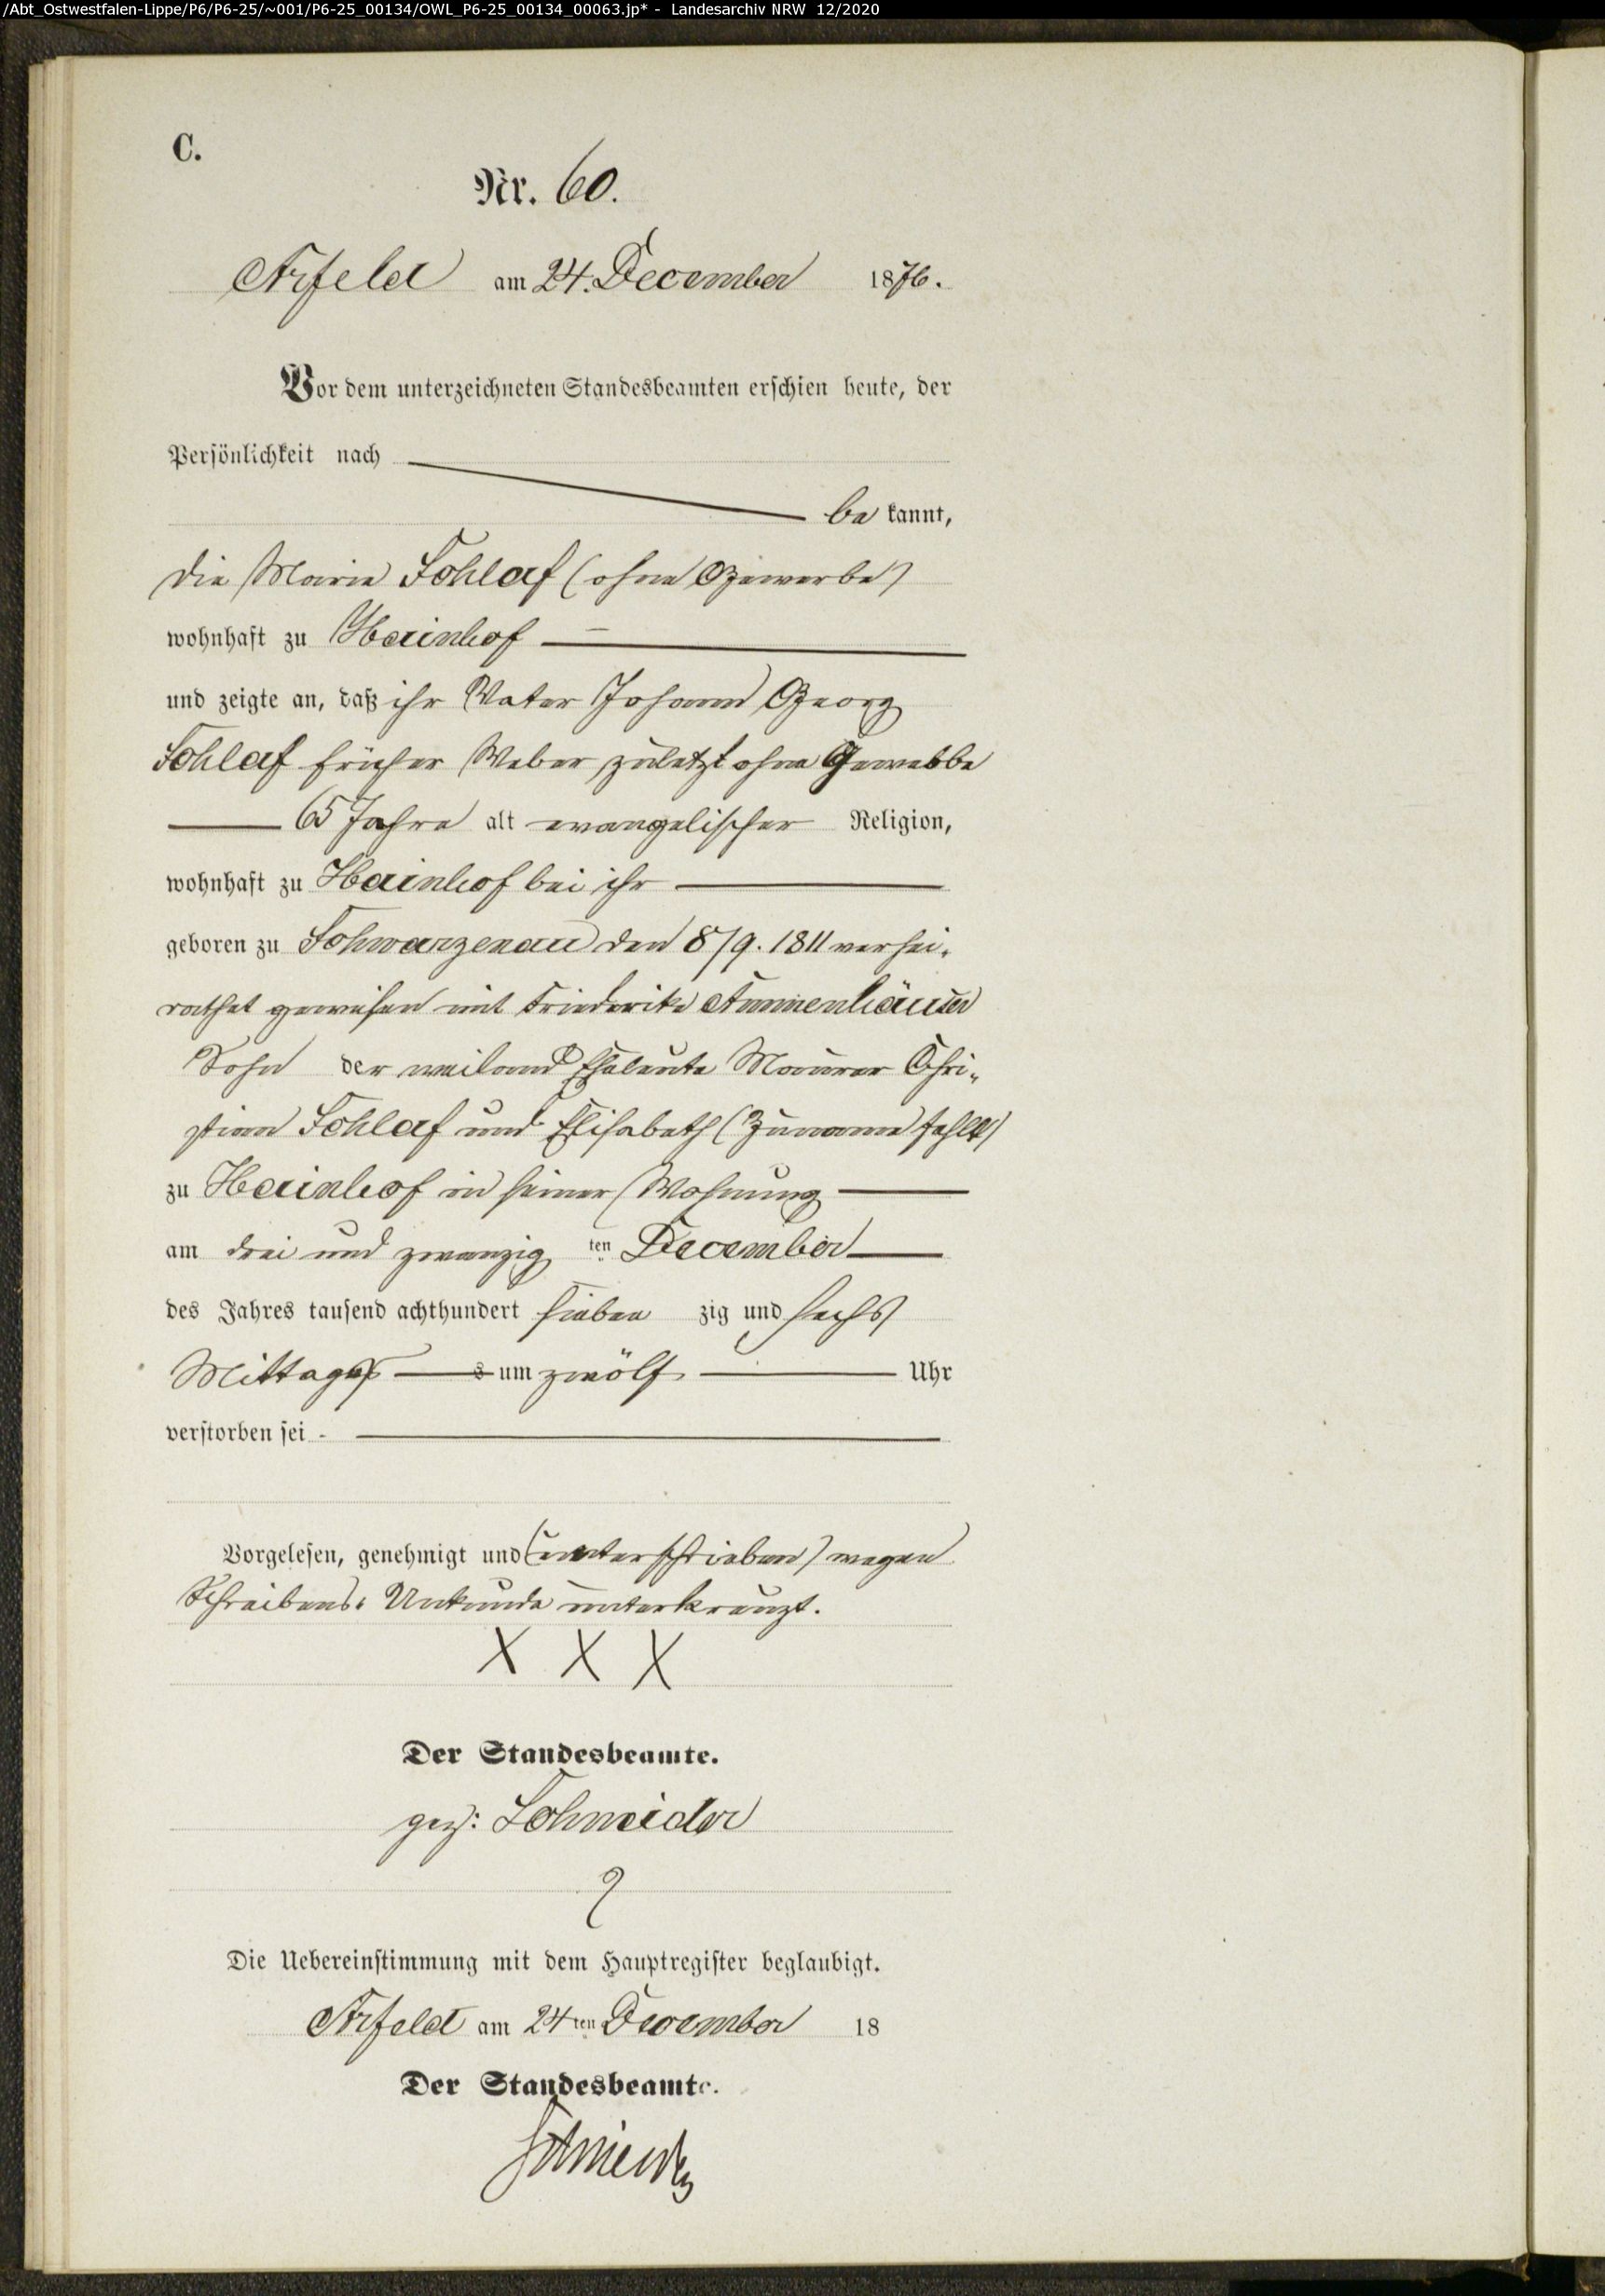 /Abt_Ostwestfalen-Lippe/P6/P6-25/~001/P6-25_00134/OWL_P6-25_00134_00063.jp* - Landesarchiv NRW 12/2020
C.
Nr. 60.
Arfeld am 24. December 1876.
Vor dem unterzeichneten Standesbeamten erschien heute, der
Persönlichkeit nach
be kannt,
die Marie Schlaf (ohne Gewerbe)
wohnhaft zu Hainhof
und zeigte an, daß ihr Vater Johann Georg
Schlaf früher Weber zuletzt ohne Gewebbe
65 Jahre alt evangelischer Religion,
wohnhaft zu Hainhof bei ihr
geboren zu Schwarzenau den 8/9. 1811 verhei-
rathet gewesen mit Friederike
Sohn der weiland Eheleute Maurer Chri-
stian Schlaf und Elisabeth (Zuname fehlt)
zu Hainhof in seiner Wohnung
am drei und zwanzig ten December
des Jahres tausend achthundert sieben zig und sechs
Mittags s um zwölf Uhr
verstorben sei
Vorgelesen, genehmigt und (unterschrieben) wegen
Schreibens-Unkunde unterkreuzt.
X X X
Der Standesbeamte.
gez: Schneider
Die Uebereinstimmung mit dem Hauptregister beglaubigt.
Arfeld am 24 ten December 18
Der Standesbeamte.
Schneider